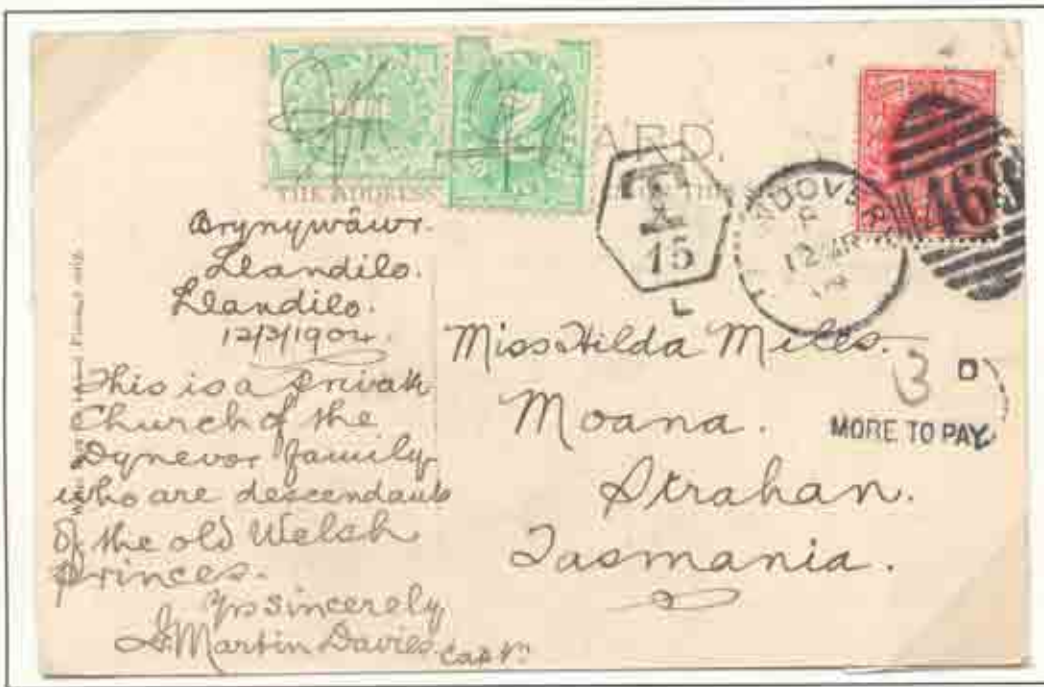 ARD.
THE ADDRESS
T
15
L
12 MR
469
Brynywâwr.
Llandilo.
Llandilo.
12/3/1904.
This is a private
Church of the
Dynevor family
who are descendants
of the old Welsh
princes.
Yrs sincerely
Martin Davies. Capt.
Miss Hilda Mills.
Moana.
Strahan.
Tasmania.
3 D
MORE TO PAY